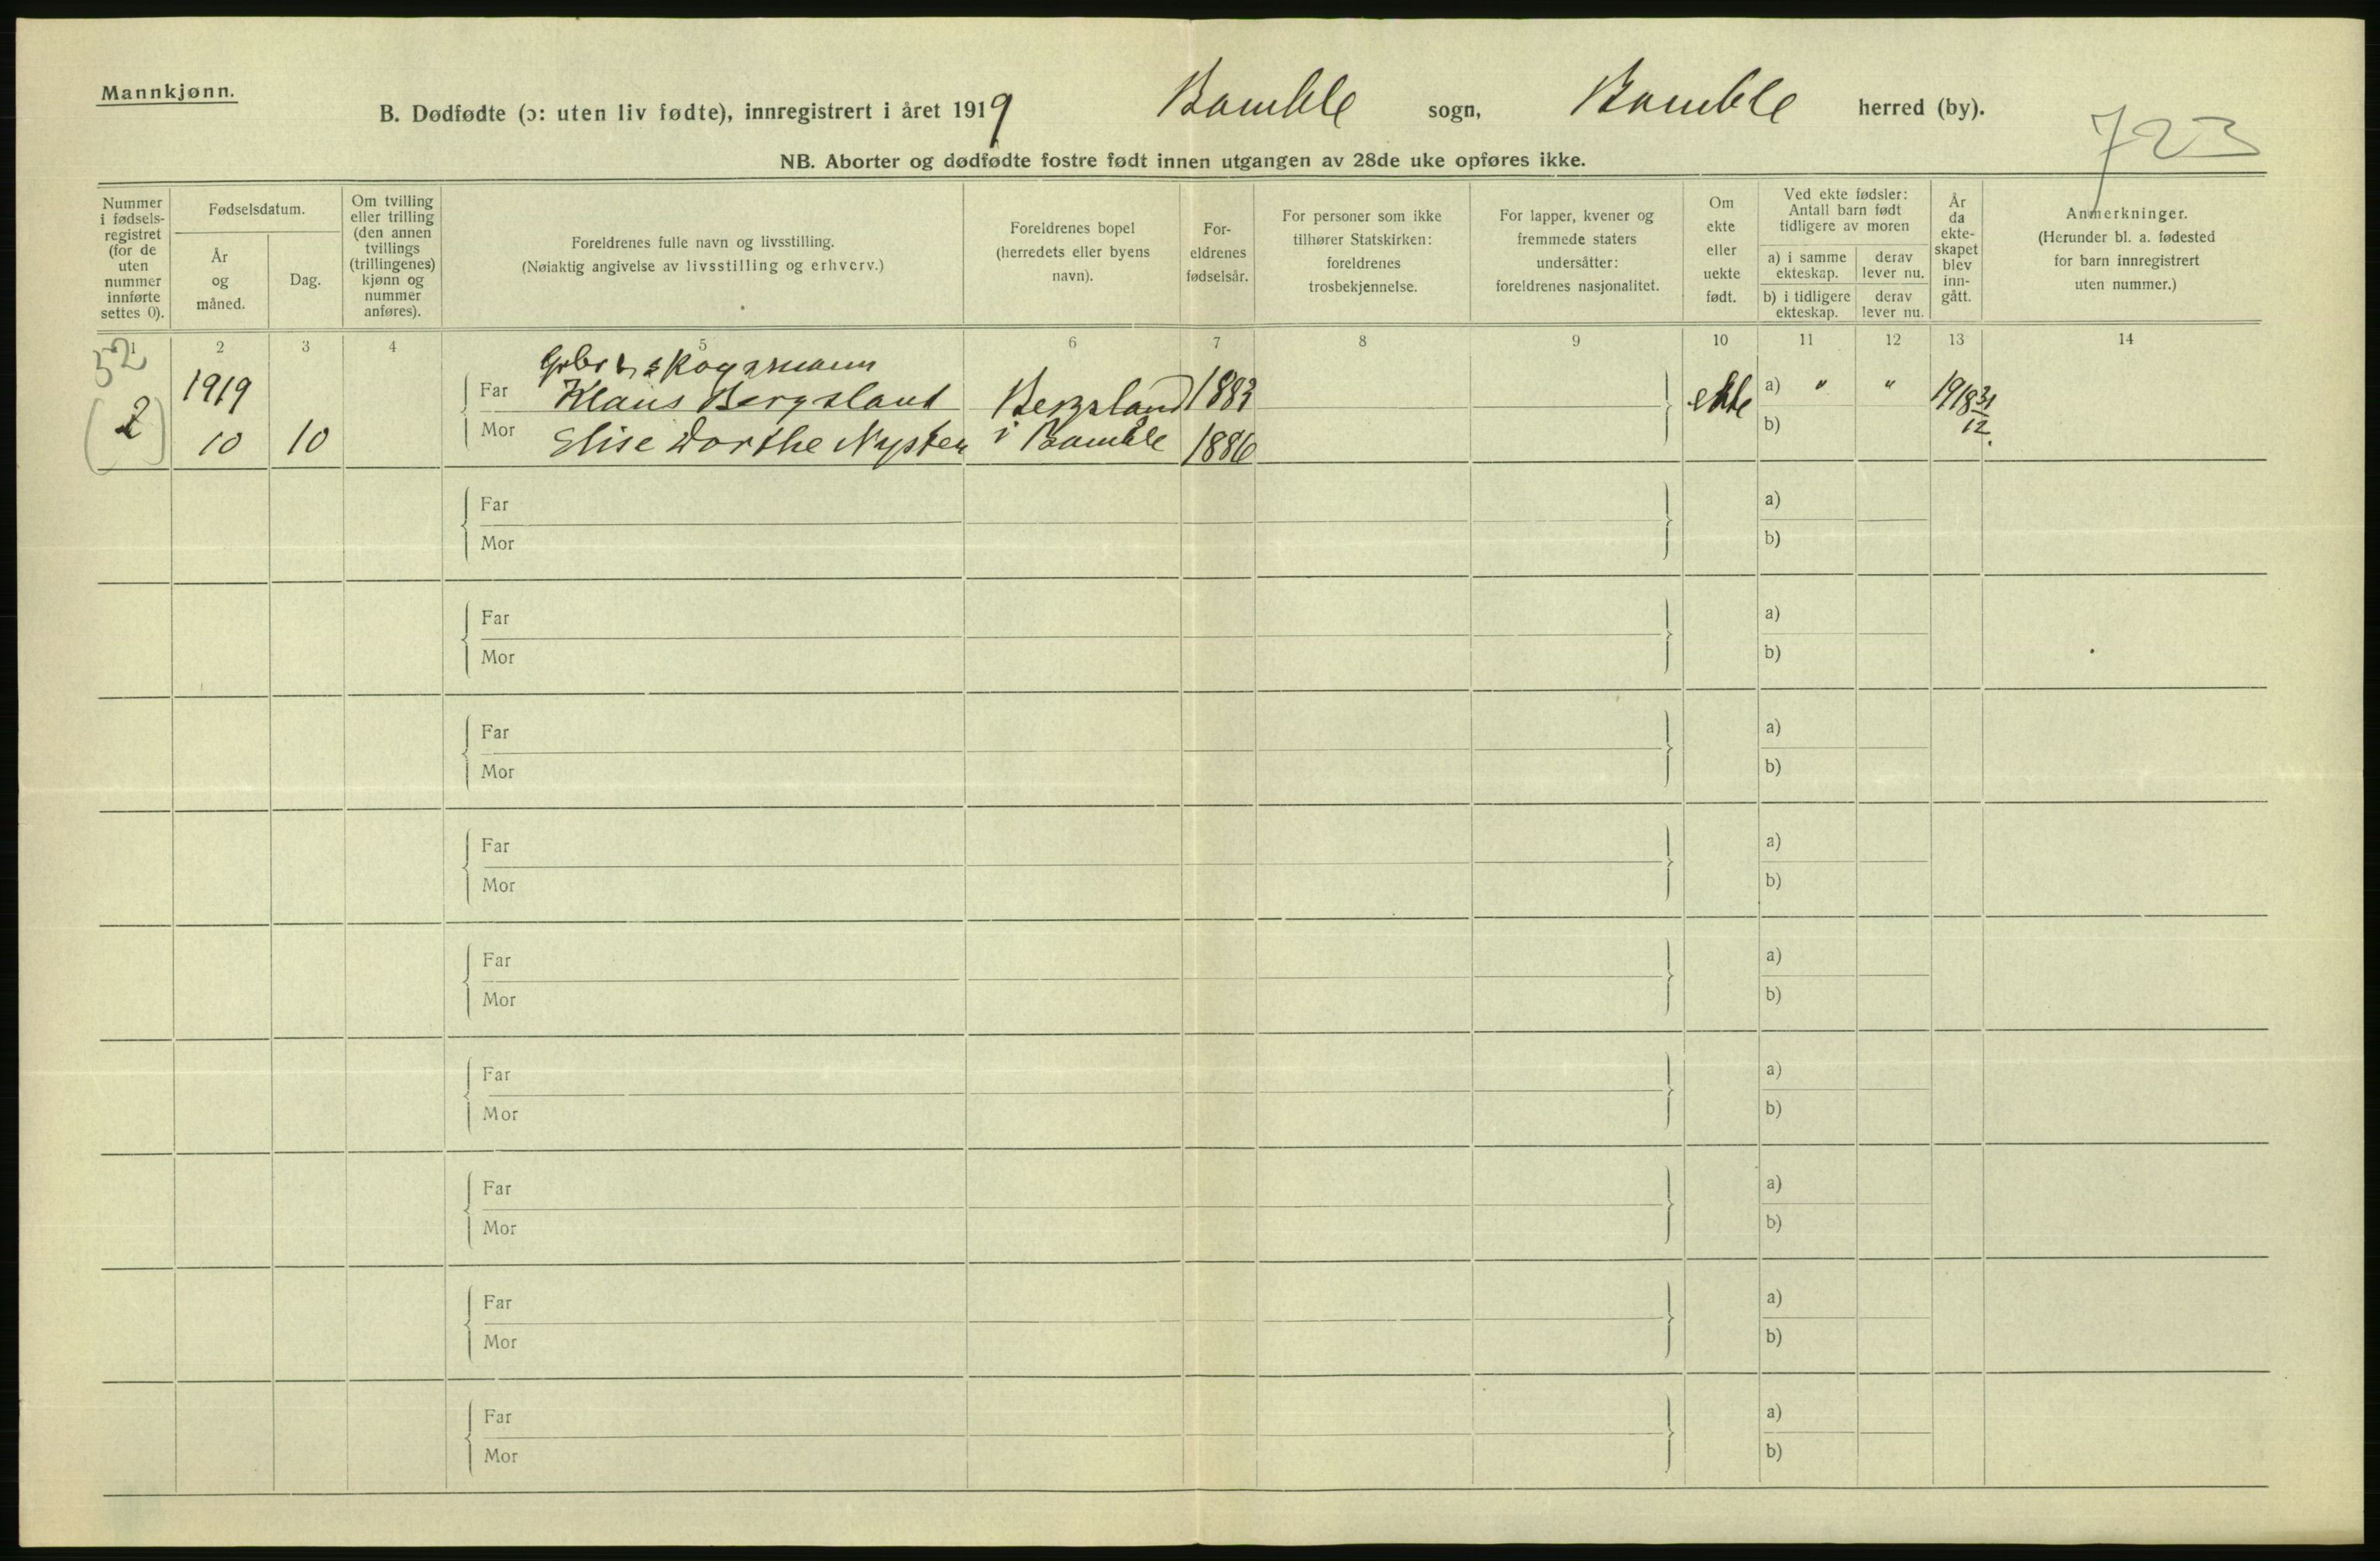 Mannkjønn.
B. Dødfødte (ɔ: uten liv fødte), innregistrert i året 1919 Bamble sogn, Bamble herred (by).
723
NB. Aborter og dødfødte fostre født innen utgangen av 28de uke opføres ikke.
Nummer i fødsels-registret (for de uten nummer innførte settes 0).
Fødselsdatum.
År og måned.
Dag.
Om tvilling eller trilling (den annen tvillings (trillingenes) kjønn og nummer anføres).
Foreldrenes fulle navn og livsstilling.
(Nøiaktig angivelse av livsstilling og erhverv.)
Foreldrenes bopel (herredets eller byens navn).
For-eldrenes fødselsår.
For personer som ikke tilhører Statskirken: foreldrenes trosbekjennelse.
For lapper, kvener og fremmede staters undersåtter: foreldrenes nasjonalitet.
Om ekte eller uekte født.
Ved ekte fødsler: Antall barn født tidligere av moren
a) i samme ekteskap.
derav lever nu.
b) i tidligere ekteskap.
derav lever nu.
År da ekte-skapet blev inn-gått.
Anmerkninger.
(Herunder bl. a. fødested for barn innregistrert uten nummer.)
1 2 3 4 5 6 7 8 9 10 11 12 13 14
52
(2)
1919
10 10
skogsmann
Far Klaus Bergsland Bergsland 1883 ekte a) " " 1918 31/12.
Mor Elise Dorthe i Bamble 1886 b)
Far a)
Mor b)
Far a)
Mor b)
Far a)
Mor b)
Far a)
Mor b)
Far a)
Mor b)
Far a)
Mor b)
Far a)
Mor b)
Far a)
Mor b)
Far a)
Mor b)